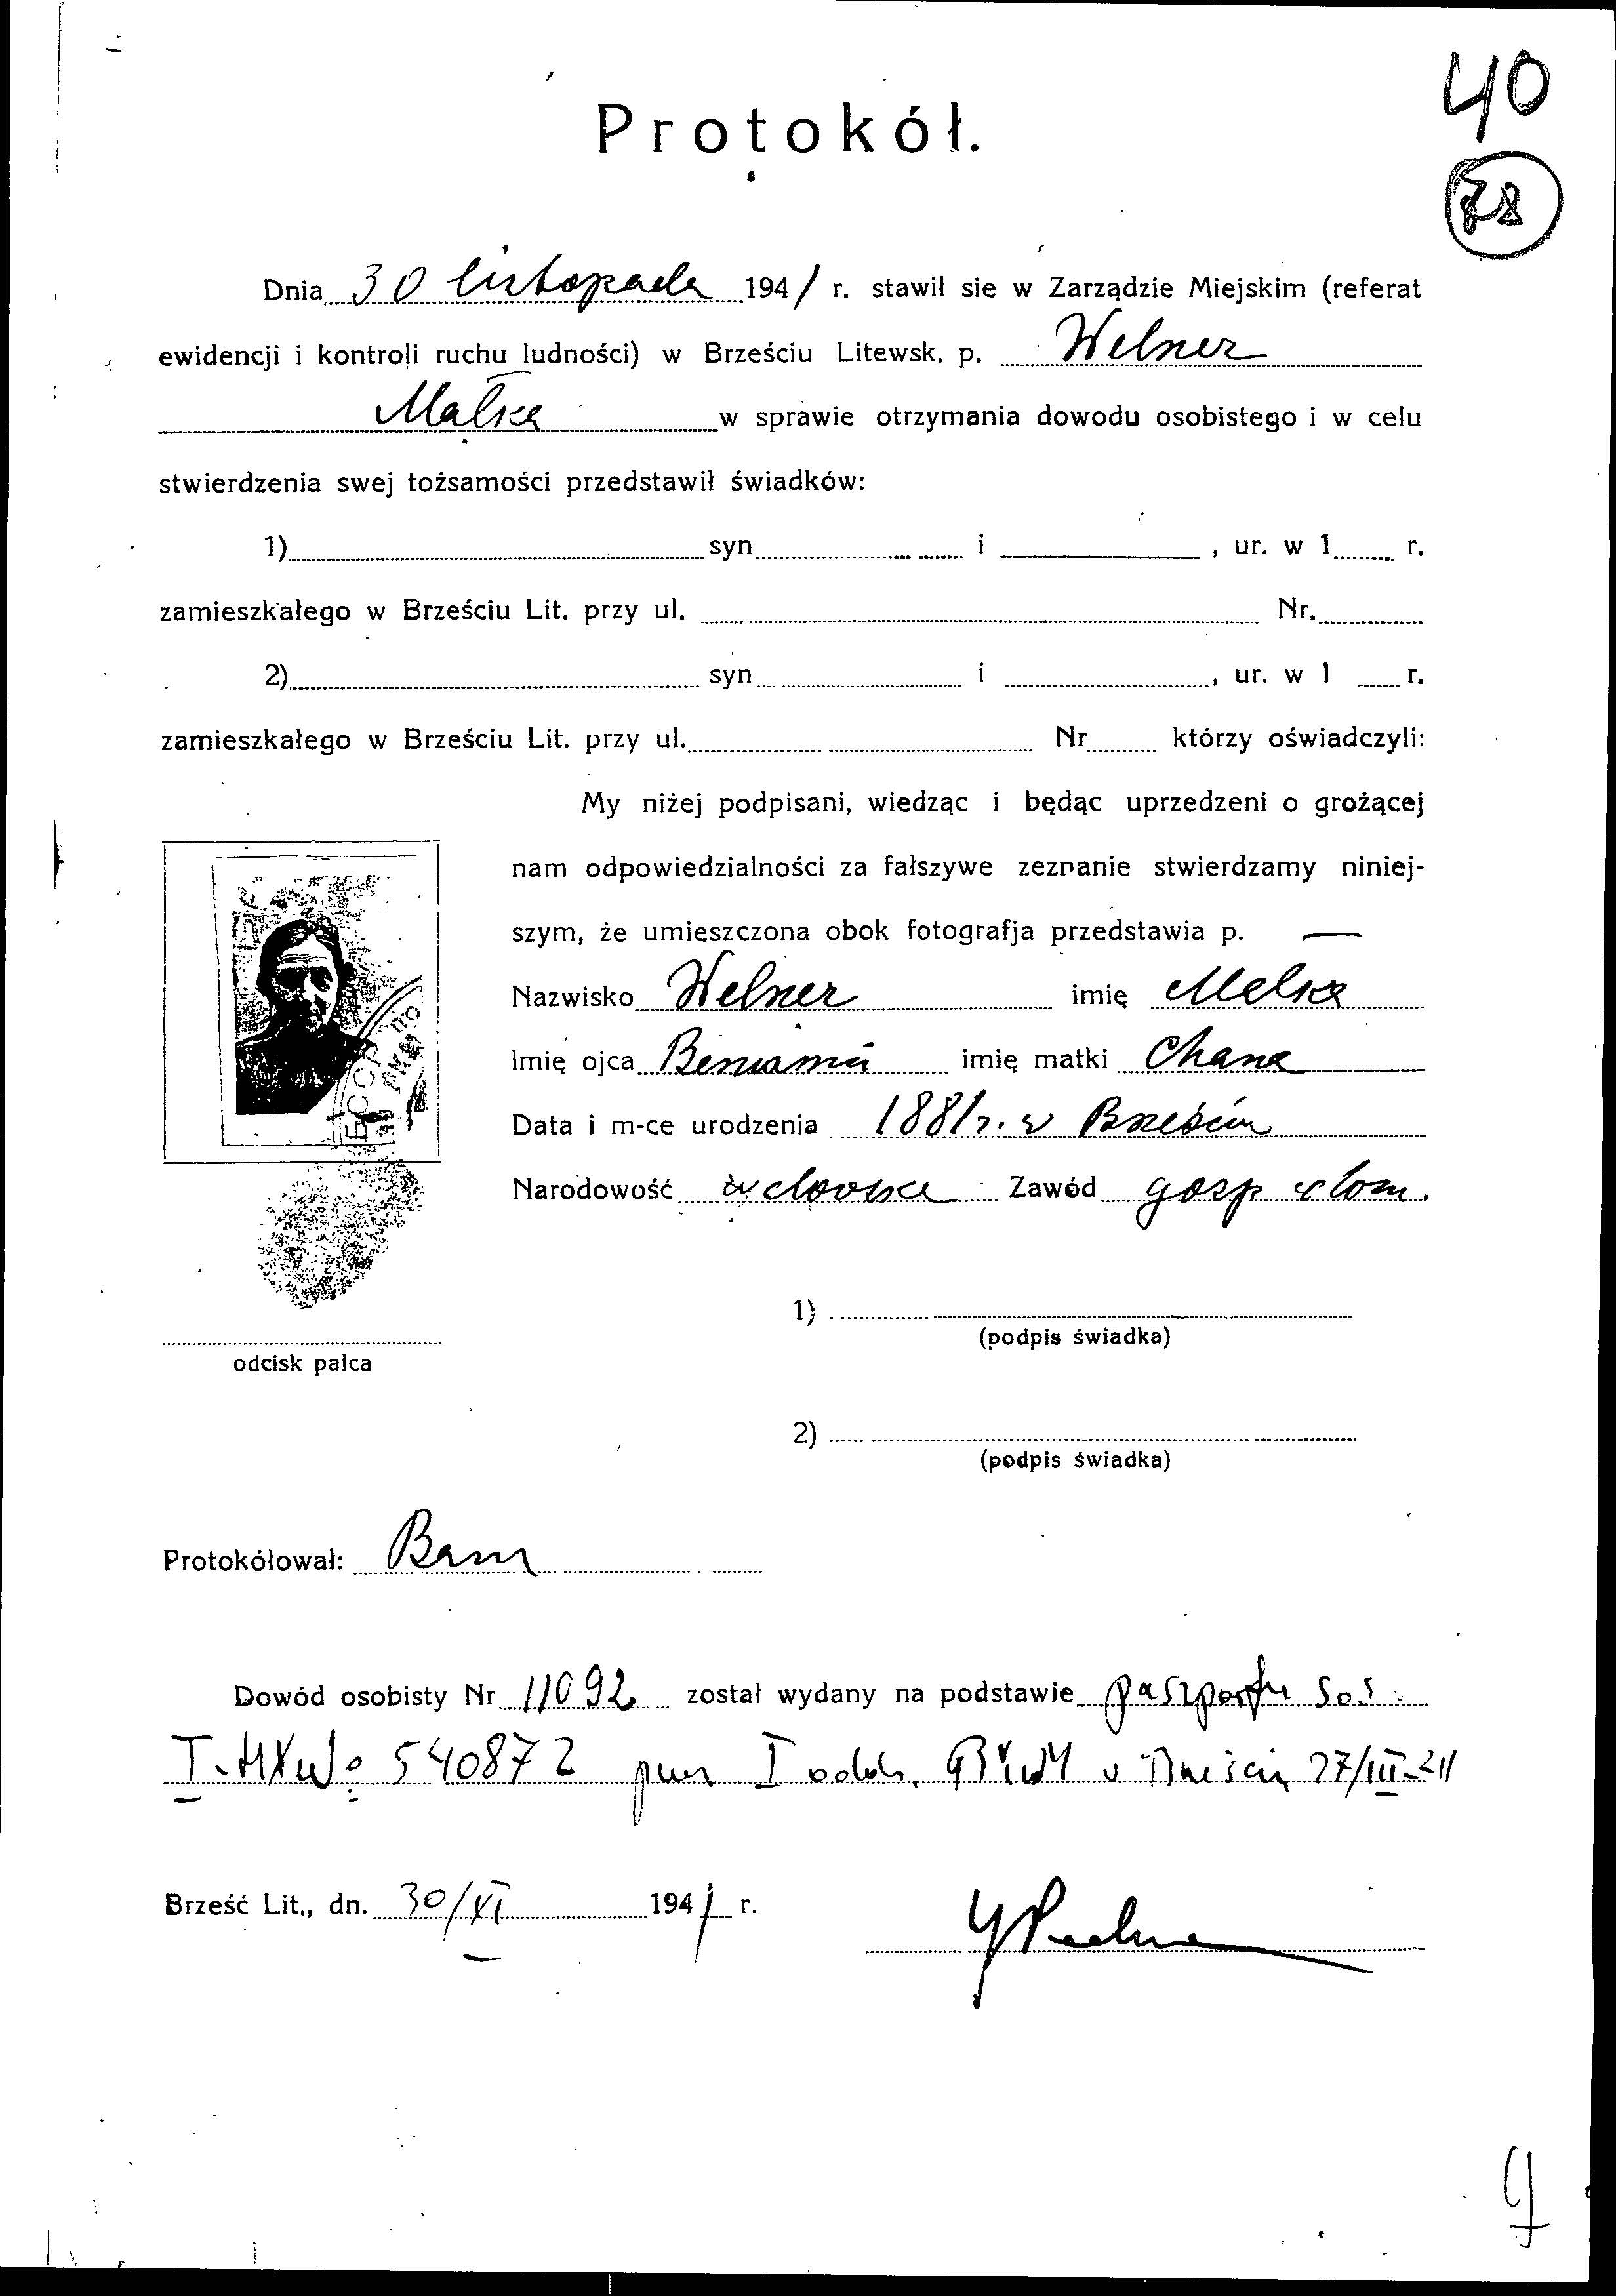 40
78
Protokół.
Dnia 30 listopada 1941 r. stawił sie w Zarządzie Miejskim (referat
ewidencji i kontroli ruchu ludności) w Brześciu Litewsk. p. Welner
Malka w sprawie otrzymania dowodu osobistego i w celu
stwierdzenia swej tożsamości przedstawił świadków:
1) syn i , ur. w 1 r.
zamieszkałego w Brześciu Lit. przy ul. Nr.
2) syn i , ur. w 1 r.
zamieszkałego w Brześciu Lit. przy ul. Nr którzy oświadczyli:
My niżej podpisani, wiedząc i będąc uprzedzeni o grożącej
nam odpowiedzialności za fałszywe zeznanie stwierdzamy niniej-
szym, że umieszczona obok fotografja przedstawia p. —
Nazwisko Welner imię Malka
Imię ojca Beniamin imię matki Chana
Data i m-ce urodzenia 1881 r. w Brześciu
Narodowość żydowska Zawód gosp dom.
1)
(podpis świadka)
odcisk palca
2)
(podpis świadka)
Protokółował:
Dowód osobisty Nr 11092 został wydany na podstawie paszportu sow.
540872 I oddz. w Brześciu 27/III-41
Brześć Lit., dn. 30/XI 1941 r.
9